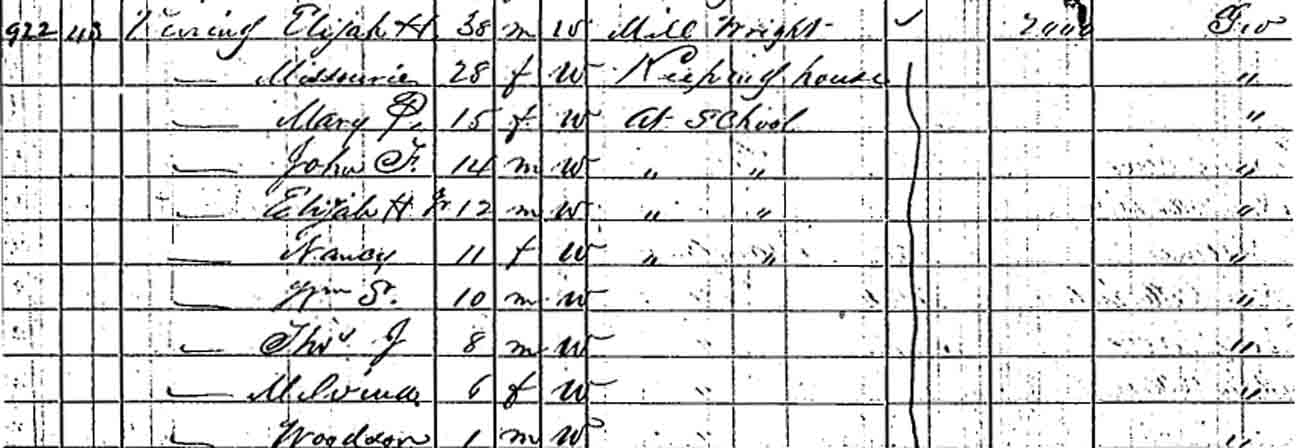 922 Elijah H. 38 m W Mill Wright ✓ 2000 Geo
— Missourie 28 f W Keeping house "
— Mary P. 15 f W At School "
— John F. 14 m W " " "
— Elijah H Jr 12 m W " " "
— Nancy 11 f W " " "
— Wm S. 10 m W "
— Thos J 8 m W "
— Melvina 6 f W "
— Woodson 1 m W "